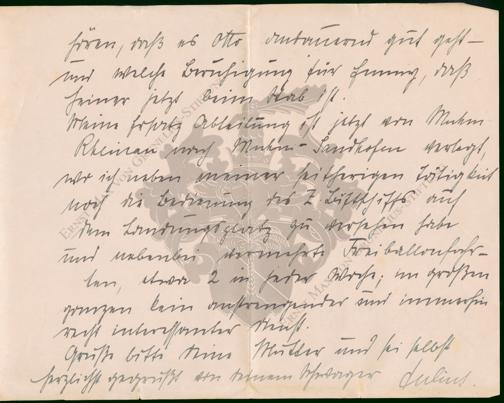 hören, daß es Otto andauernd gut geht –
und welche Beruhigung für Emmy, daß
Heiner jetzt beim Stab ist.
Meine Ersatz Abteilung ist jetzt von Mhm-
Rheinau nach Mhm-Sandhofen verlegt,
wo ich neben meiner seitherigen Tätigkeit
noch die Bedienung des Z Luftschiffs auf
dem Landungsplatz zu versehen habe
und nebenbei vermehrte Freiballonfahr-
ten, etwa 2 in jeder Woche; im großen
ganzen kein anstrengender und immerhin
recht interessanter Dienst.
Grüße bitte Deine Mutter und sei selbst
herzlichst gegrüßt von Deinem Schwager Julius.